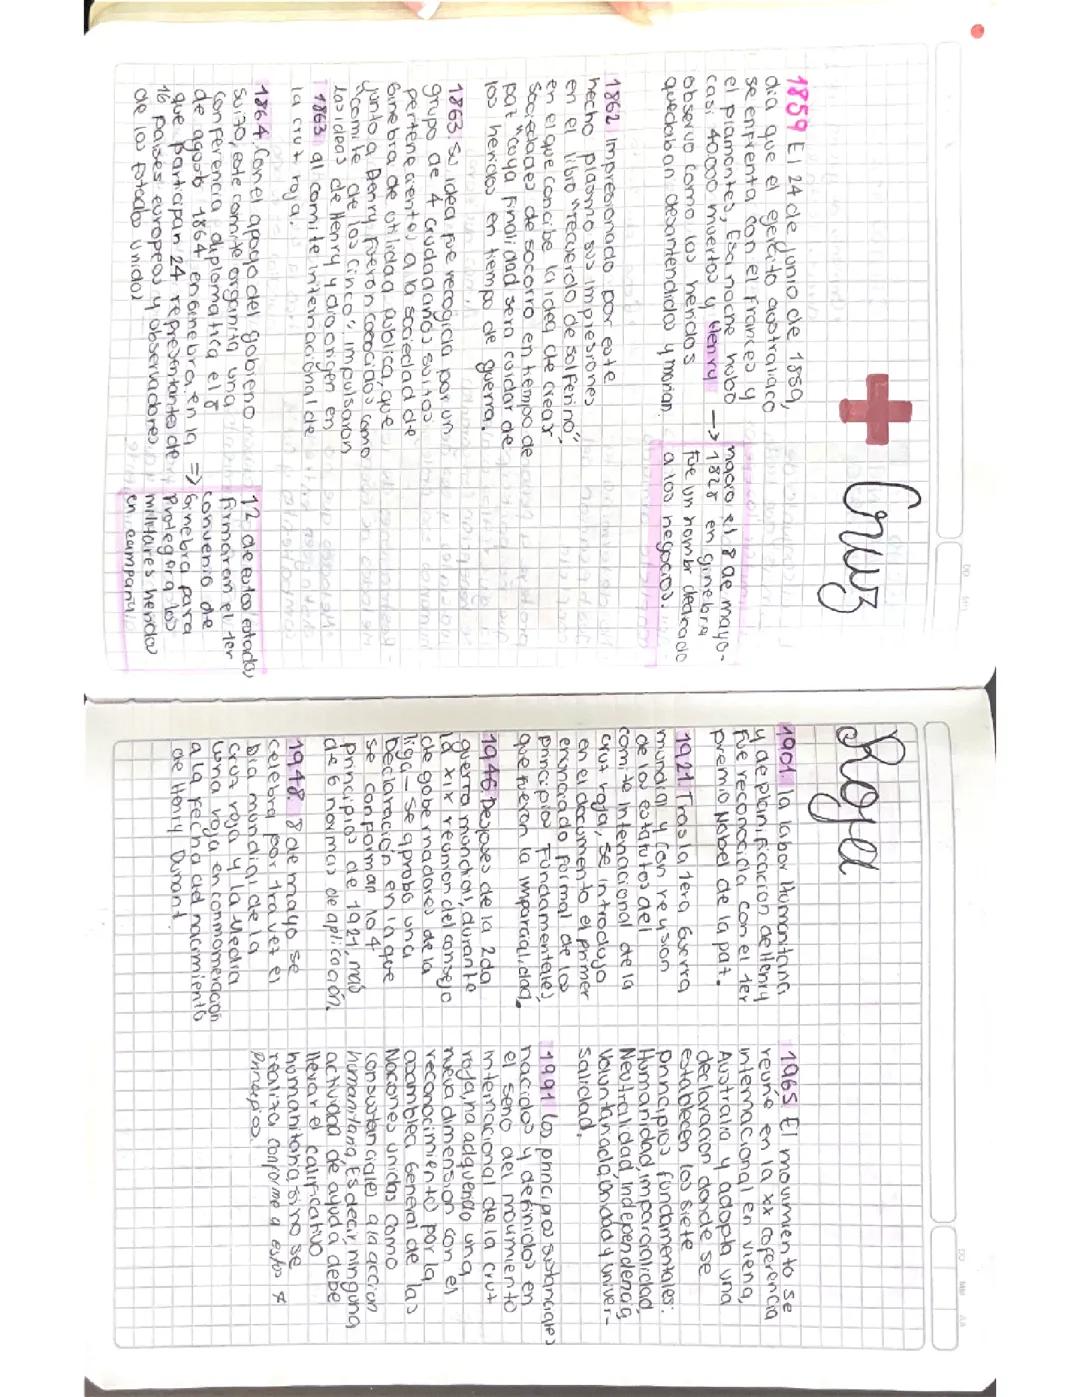 Cruz
1859 El 24 de junio de 1859,
dia que el ejercito australiaco
se enfrenta con el Frances y
el piamontes, Esa noche hubo
casi 40000 muertos y Henry
observo como los heridos
quedaban desantendidos y morian.
→ nacio el 8 de mayo-
1828 en ginebra
fue un hombr dedicado
a los negocios.
1862 Impresionado por este
hecho plasmo sus impresiones
en el libro "recuerdo de solferino",
en el que concibe la idea de crear
sociedades de socorro en tiempo de
paz "cuya finalidad sera cuidar de
los heridos en tiempo de guerra.
1863. Su idea fue recogida por un
grupo de 4 ciudadanos suizos
pertenecientes a la sociedad de
Ginebra de utilidad publica, que
junto a Henry fueron conocidos como
"comite de los cinco", impulsaron
las ideas de Henry y dio origen en
1863 al comite internacional de
la cruz roja.
1864. Con el apoyo del gobierno
suizo, este comite organiza una
conferencia diplomatica el 8
de agosto 1864 en ginebra, en la ⇒
que participan 24 representantes de
16 paises europeos y observadores
de los Estados unidos
12 de estos estados
firmaron el 1er
convenio de
Ginebra para
proteger a los
militares heridos
en campaña.
Roja
1901. la labor Humanitaria
y de planificacion de Henry
fue reconocida con el 1er
premio Nobel de la paz.
1921 Tras la 1era Guerra
mundial y con revision
de los estatutos del
comite Intenacional de la
cruz roja, se introdujo
en el documento el primer
enunciado formal de los
principios Fundamentales,
que fueron la imparcialidad,
1946 Despues de la 2da
guerra mundial, durante
la XIX reunion del consejo
de gobernadores de la
liga— se aprobo una
Declaración en la que
se conforman lo 4
principios de 1921, mas
de 6 normas de aplicación.
1948. 8 de mayo se
celebra por 1ra vez el
Dia mundial de la
cruz roja y la Media
Luna roja en conmomeracion
a la fecha del nacimiento
de Henry Dunant.
1965 El movimiento se
reunie en la XX coferencia
internacional en viena,
Australia y adopta una
declaracion donde se
establecen los siete
principios fundamentales:
Humanidad, imparcialidad,
Neutralidad, Independencia,
Voluntariado, Unidad y Univer-
salidad.
1991 los principios sustanciales
nacidos y definidos en
el seno del moviminto
internacional de la cruz
roja, ha adquerido una
nueva dimension con el
reconocimiento por la
asamblea General de las
Naciones unidas como
consustanciales a la accion
humanitaria, Es decir, ninguna
actividad de ayuda debe
llevar el calificativo
humanitaria sino se
realiza conforme a estos
principios.